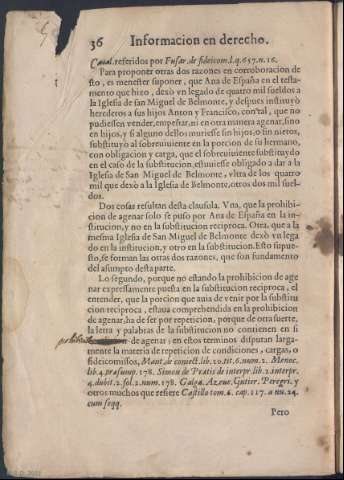 36 Informacion en derecho.
Canal. referidos por Fusar. de fideicom. l. q. 657. n. 16.
Para proponer otras dos razones en corroboracion de
sto, es menester suponer, que Ana de España en el testa-
mento que hizo, dexò vn legado de quatro mil sueldos a
la Iglesia de san Miguel de Belmonte, y despues instituyò
herederos a sus hijos Anton y Francisco, con tal, que no
pudiessen vender, empeñar, ni en otra manera agenar, sino
en hijos, y si alguno dellos muriesse sin hijos, o sin nietos,
substituyò al sobreuiuiente en la porcion de su hermano,
con obligacion y carga, que el sobreuiuiente substituydo
en el caso de la substitucion, estuuiesse obligado a dar a la
Iglesia de San Miguel de Belmonte, vltra de los quatro
mil que dexò a la Iglesia de Belmonte, otros dos mil suel-
dos.
Dos cosas resultan desta clausula. Vna, que la prohibi-
cion de agenar solo se puso por Ana de España en la in-
stitucion, y no en la substitucion reciproca. Otra, que a la
mesma Iglesia de San Miguel de Belmonte dexò vn lega
do en la institucion, y otro en la substitucion. Esto supue-
sto, se forman las otras dos razones, que son fundamento
del assumpto desta parte.
Lo segundo, porque no estando la prohibicion de age
nar expressamente puesta en la substitucion reciproca, el
entender, que la porcion que auia de venir por la substitu
cion reciproca, estaua comprehendida en la prohibicion
de agenar, ha de ser por repeticion, porque de otra suerte,
la letra y palabras de la substitucion no contienen en si
de agenar: en estos terminos disputan larga-
mente la materia de repeticion de condiciones, cargas, o
fideicomissos, Mant. de coniect. lib. 10. tit. 6. num. 2. Menoc.
lib. 4. præsump. 178. Simon de Pratis de interpr. lib. 2. interpr.
4. dubit. 2. sol. 2. num. 178. Galga. Az. eue. Gutier. Peregri. y
otros muchos que refiere Castillo tom. 4. cap. 117. a nu. 24.
cum seqq.
Pero